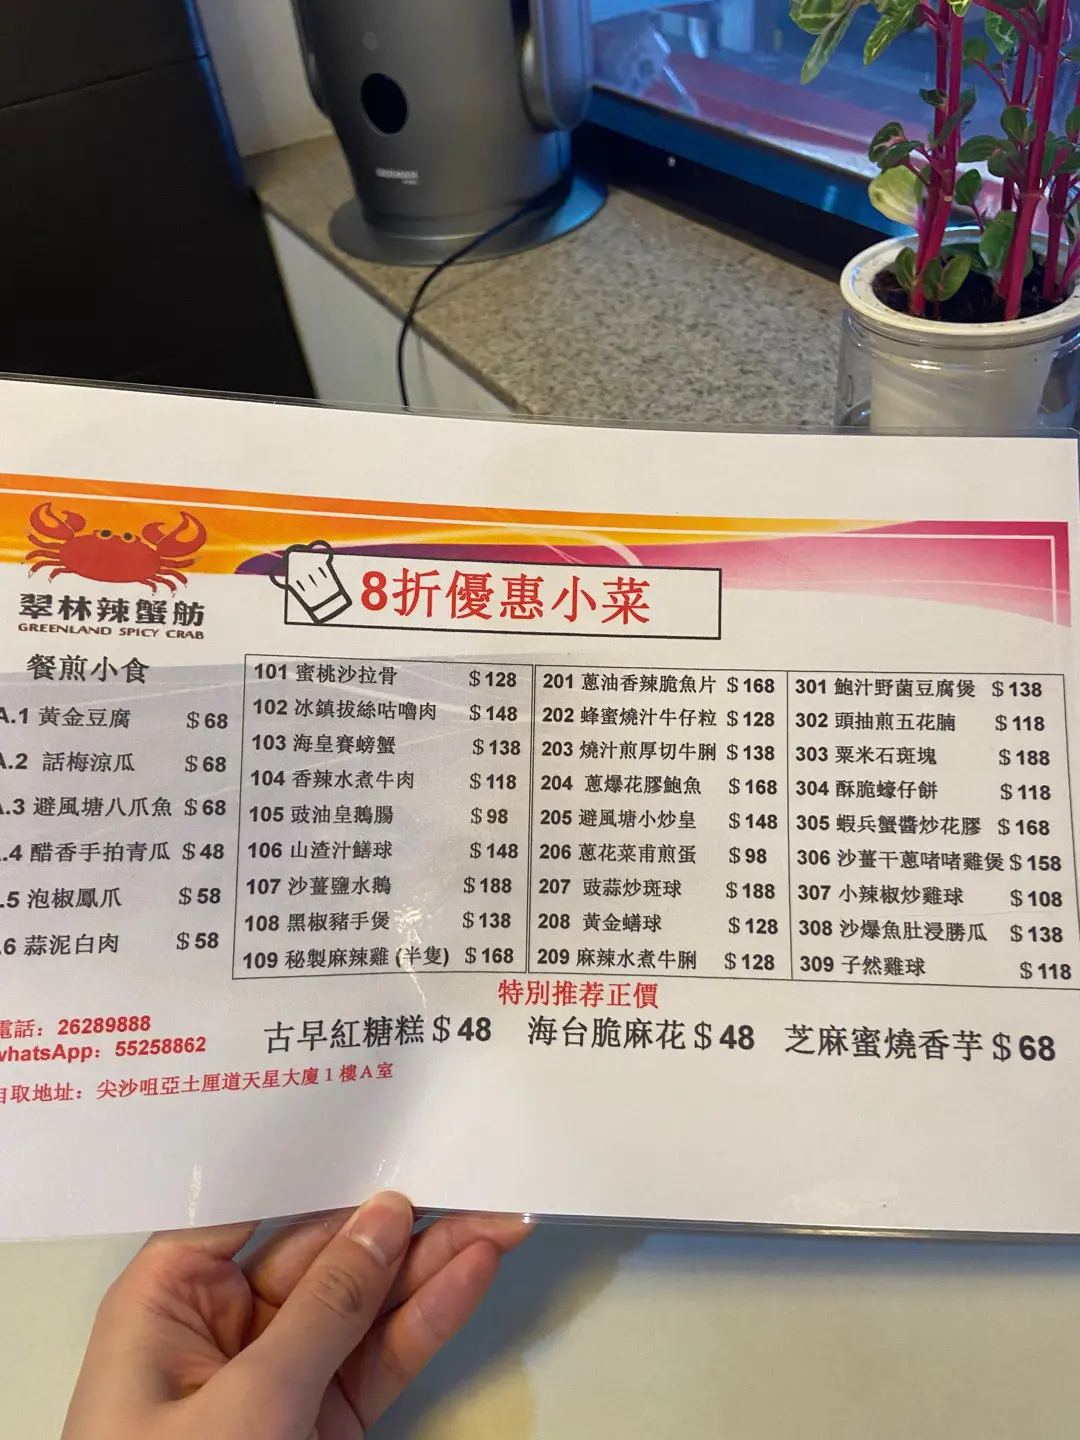 翠林辣蟹舫
GREENLAND SPICY CRAB
8折優惠小菜
餐煎小食
A.1 黃金豆腐 $68
A.2 話梅涼瓜 $68
.3 避風塘八爪魚 $68
.4 醋香手拍青瓜 $48
.5 泡椒鳳爪 $58
6 蒜泥白肉 $58
101 蜜桃沙拉骨 $128
102 冰鎮拔絲咕嚕肉 $148
103 海皇賽螃蟹 $138
104 香辣水煮牛肉 $118
105 豉油皇鵝腸 $98
106 山渣汁鱔球 $148
107 沙薑鹽水鵝 $188
108 黑椒豬手煲 $138
109 秘製麻辣雞 (半隻) $168
201 蔥油香辣脆魚片 $168
202 蜂蜜燒汁牛仔粒 $128
203 燒汁煎厚切牛脷 $138
204 蔥爆花膠鮑魚 $168
205 避風塘小炒皇 $148
206 蔥花菜甫煎蛋 $98
207 豉蒜炒斑球 $188
208 黃金鱔球 $128
209 麻辣水煮牛脷 $128
301 鮑汁野菌豆腐煲 $138
302 頭抽煎五花腩 $118
303 粟米石斑塊 $188
304 酥脆蠔仔餅 $118
305 蝦兵蟹醬炒花膠 $168
306 沙薑干蔥啫啫雞煲 $158
307 小辣椒炒雞球 $108
308 沙爆魚肚浸勝瓜 $138
309 子然雞球 $118
特別推荐正價
古早紅糖糕 $48 海台脆麻花 $48 芝麻蜜燒香芋 $68
電話：26289888
whatsApp：55258862
自取地址：尖沙咀亞士厘道天星大廈1樓A室